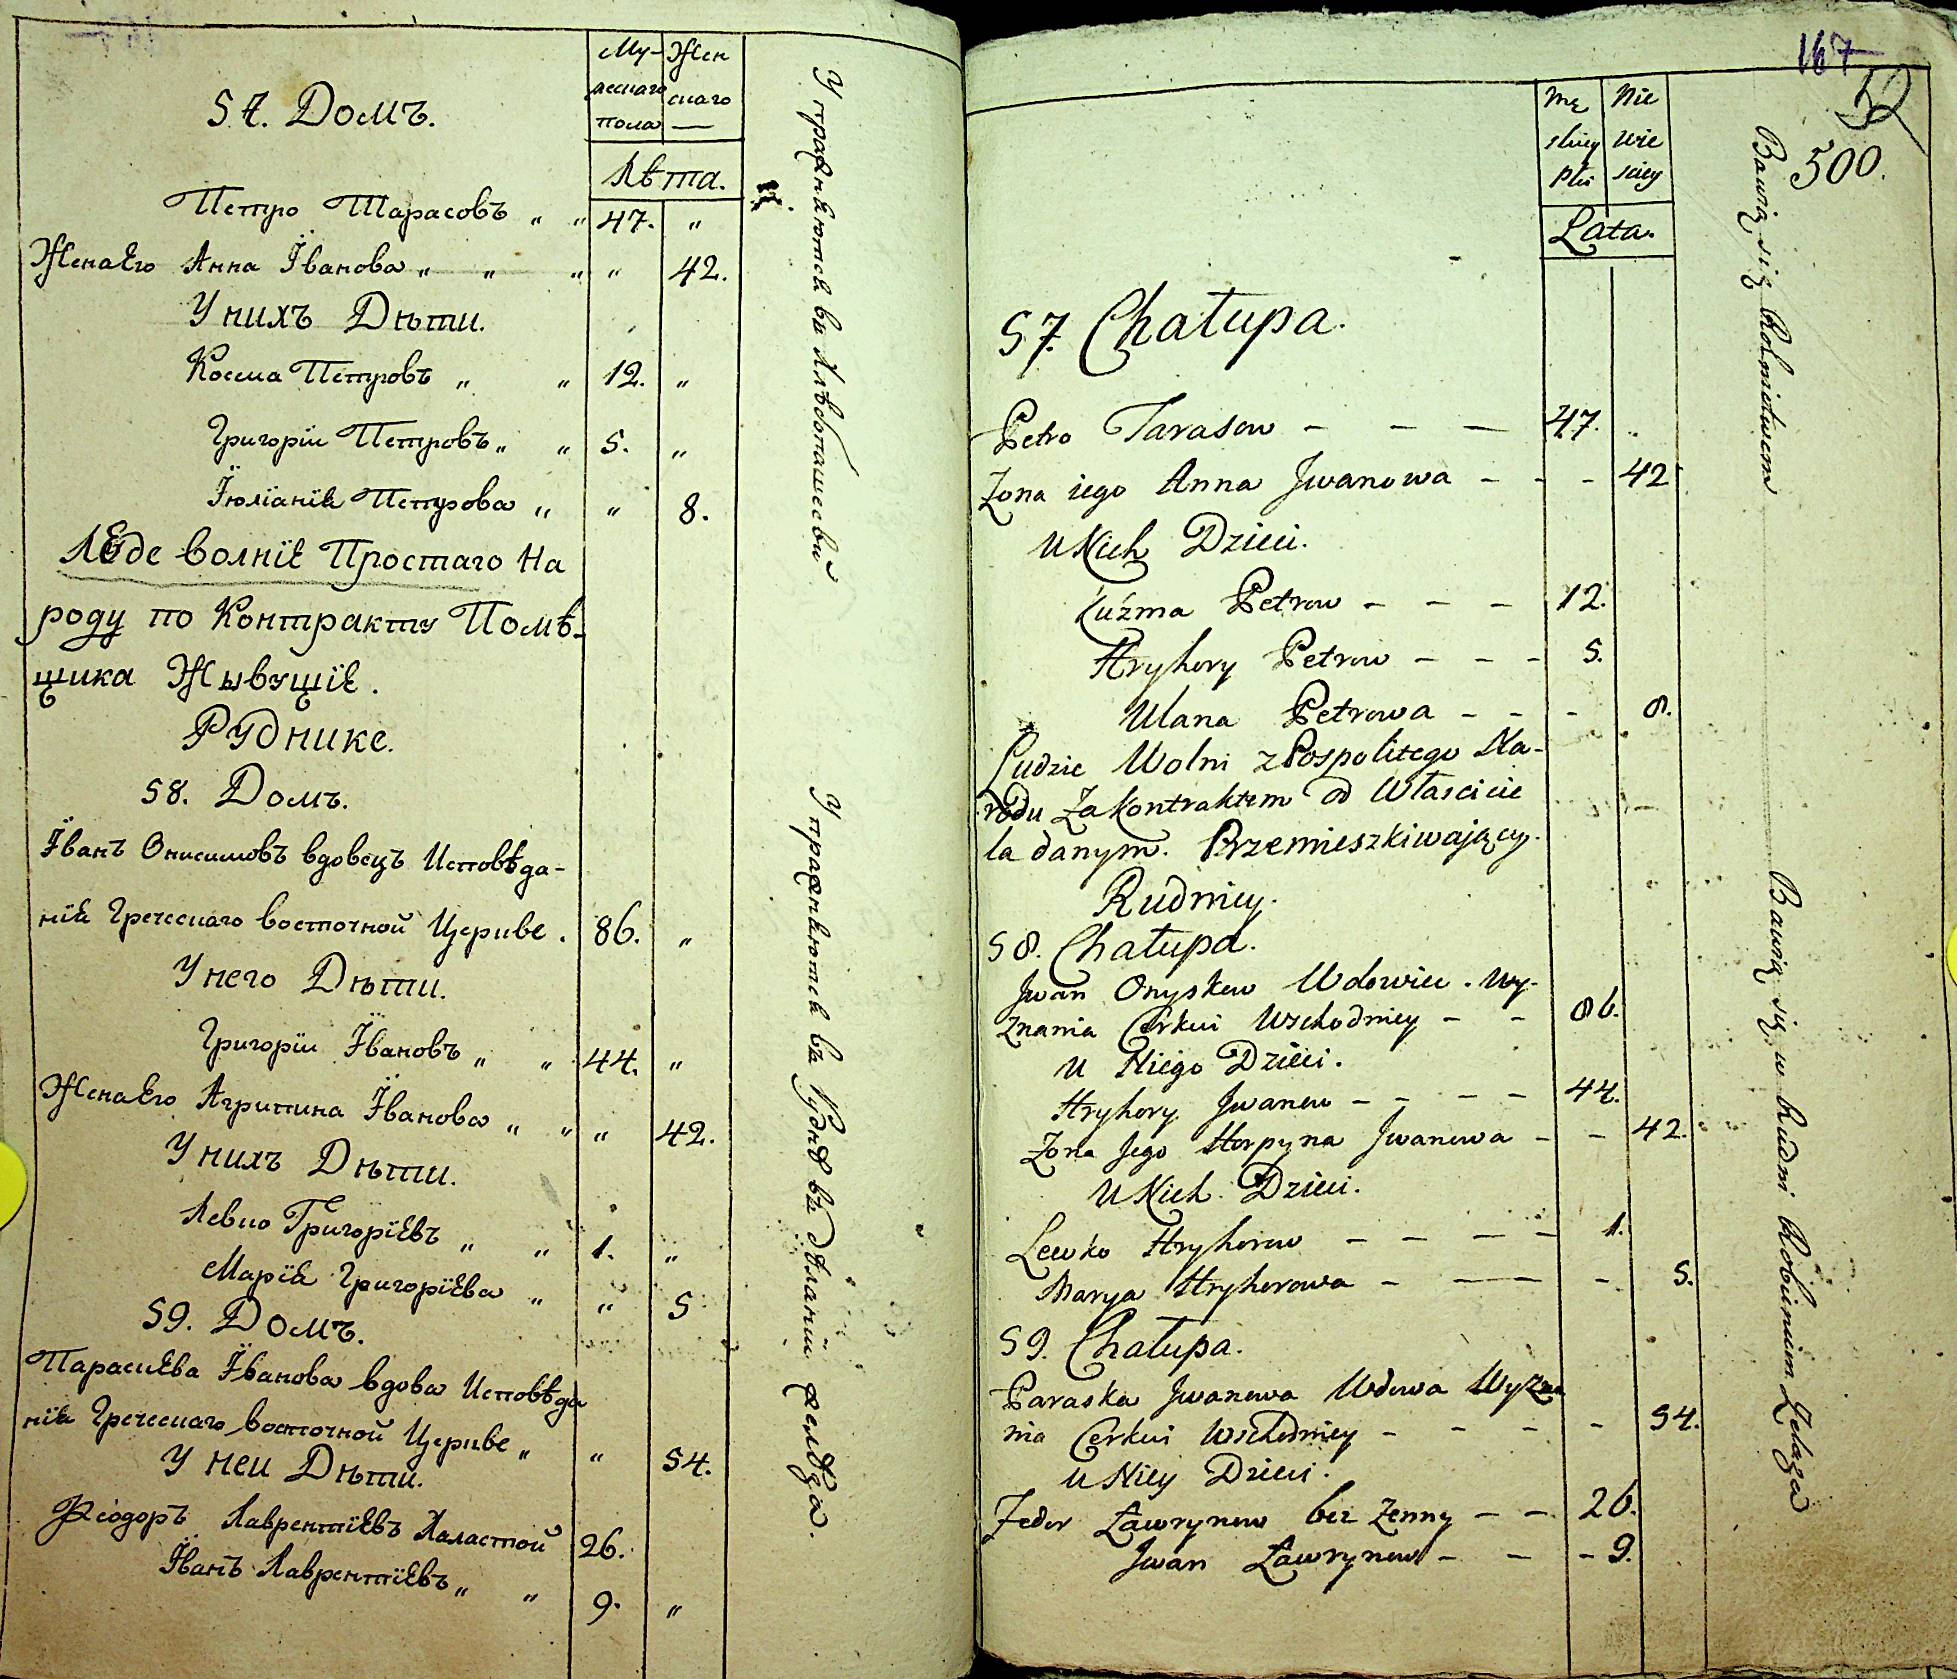 Му-
жескаго
пола
Жен
скаго
—
Лѣта.
57. Домъ.
Петро Тарасовъ „ „ 47. „
Жена Его Анна Їванова „ „ „ „ 42.
У нихъ Дѣти.
Косма Петровъ „ „ 12. „
Григоріи Петровъ „ „ 5. „
Їюлїанїя Петрова „ „ 8.
Люде волнїе Простаго На
роду по Контракту Помѣ-
щика Жывущїе.
Руднике.
58. Домъ.
Їванъ Онисимовъ вдовецъ Исповѣда-
нїя Греческаго восточной Церкве. 86. „
У него Дѣти.
Григоріи Ївановъ „ „ 44. „
Жена Его Агрипина Їванова „ „ „ 42.
У нихъ Дѣти.
Левко Григорїевъ „ „ 1. „
Марїя Григорїева „ „ 5
59. Домъ.
Параскева Їванова вдова Исповѣда
нїя Греческаго восточной Церкве „ „ 54.
У неи Дѣти.
Феодоръ Лаврентїевъ Халастой 26.
Їванъ Лаврентїевъ „ „ 9. „
Упражняются въ Хлѣбопашески
Упражняются въ Руднѣ въ дѣланіи желѣза.
167
52
500.
Mę
skiey
płci
Nie
wie
sciey
Lata.
57. Chałupa.
Petro Tarasow – – – 47.
Zona iego Anna Jwanowa – – – 42
U Nich Dzieci.
Kuźma Petrow – – – 12.
Hryhory Petrow – – – 5.
Ulana Petrowa – – – 8.
Ludzie Wolni z Pospolitego Na-
rodu za Kontraktem od Własciciе
la danym. Przemieszkiwający.
Rudnicy.
58. Chałupa.
Jwan Onyskow Wdowiec. Wy-
znania Cerkwi Wschodniey – – 86.
U Niego Dzieci.
Hryhory Jwanow – – – – 44.
Zona Jego Horpyna Jwanowa – – 42.
U Nich Dzieci.
Lewko Hryhorow – – – – 1.
Marya Hryhorowa – – – – 5.
59. Chałupa.
Paraska Jwanowa Wdowa Wyzna
nia Cerkwi Wschodniey – – – – – 54.
U Niey Dzieci.
Fedor Ławrynow bez Zenny – – 26.
Jwan Ławrynow – – – 9.
Bawią się Rolnictwem
Bawią się w Rudni Robieniem Zelaza